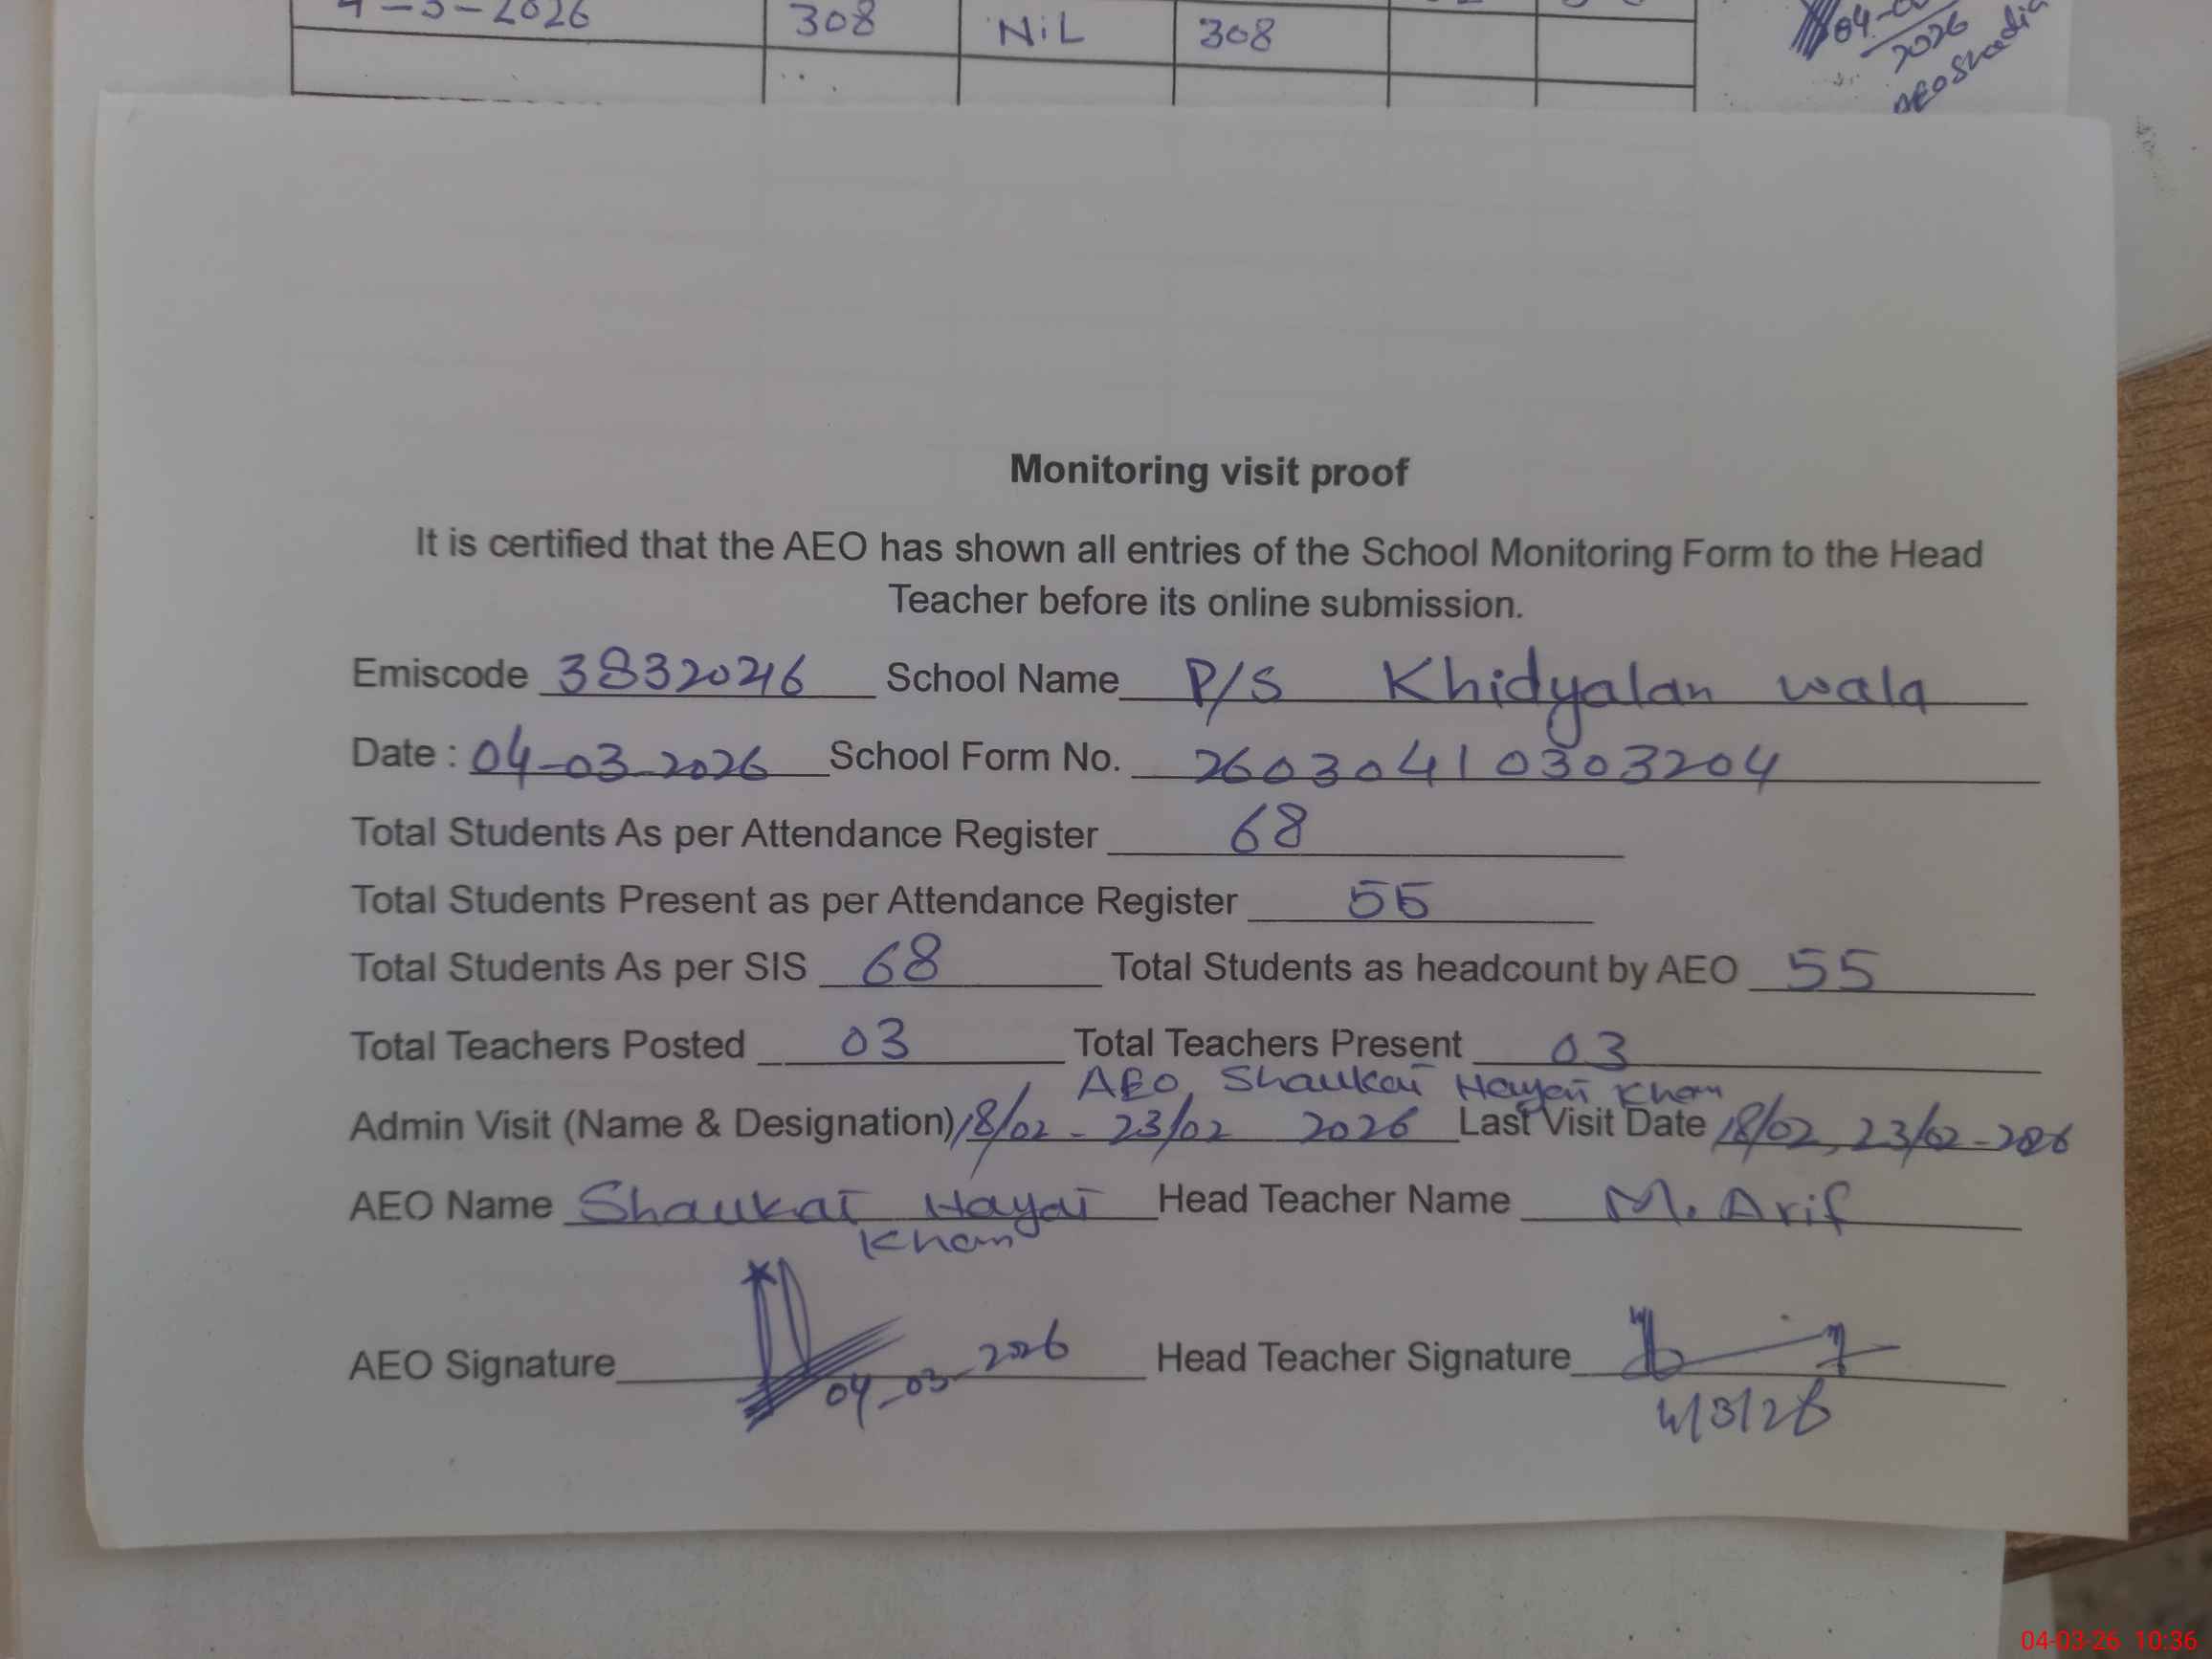 4-3-2026 308 NiL 308
04-03
2026
AEO Shaadia
Monitoring visit proof
It is certified that the AEO has shown all entries of the School Monitoring Form to the Head
Teacher before its online submission.
Emiscode 38320246 School Name P/S Khidyalan wala
Date : 04-03-2026 School Form No. 26030410303204
Total Students As per Attendance Register 68
Total Students Present as per Attendance Register 55
Total Students As per SIS 68 Total Students as headcount by AEO 55
Total Teachers Posted 03 Total Teachers Present 03
AEO, Shaukat Hayat Khan
Admin Visit (Name & Designation) 18/02 - 23/02 2026 Last Visit Date 18/02, 23/02-2026
AEO Name Shaukat Hayat Head Teacher Name M. Arif
Khan
AEO Signature 04-03-2026 Head Teacher Signature
4/3/26
04-03-26 10:36